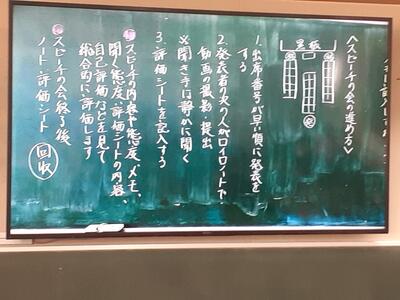 <スピーチの会の進め方>
黒板
1.出席番号が早い順に発表をする
2.発表者の次の人がロイロノートで動画の撮影・提出
※聞き手は静かに聞く
3.評価シートを記入する
スピーチの内容や態度、メモ、
聞く態度、評価シートの内容、
自己評価などを見て
総合的に評価します
スピーチの会終了後
ノート・評価シート 回収